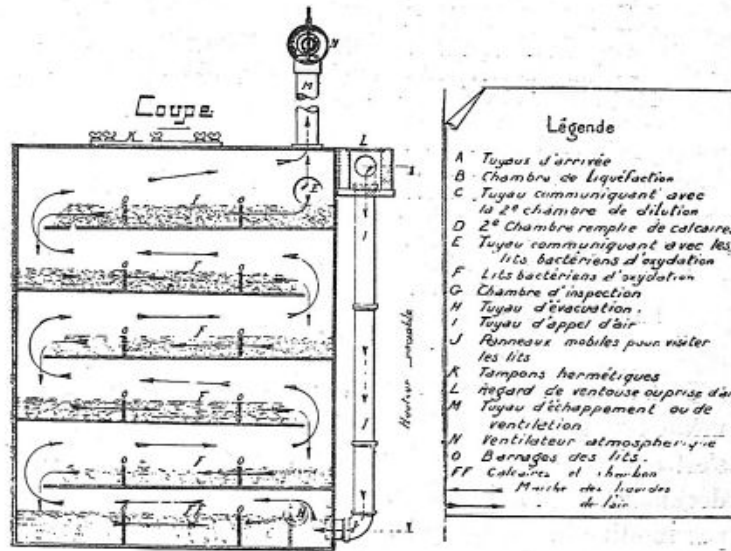 N
M
Coupe
K
L
I
E
F
O
O
I
F
O
O
I
F
O
O
Hauteur variable
F
O
O
F
O
O
FF
H
Légende
A Tuyaus d'arrivée
B Chambre de liquéfaction
C Tuyau communiquant avec
la 2e chambre de dilution
D 2e Chambre remplie de calcaires
E Tuyau communiquant avec les
lits bactériens d'oxydation
F Lits bactériens d'oxydation
G Chambre d'inspection
H Tuyau d'évacuation.
I Tuyau d'appel d'air
J Panneaux mobiles pour visiter
les lits
K Tampons hermétiques
L Regard de ventouse ou prise d'air
M Tuyau d'échappement ou de
ventilation
N Ventilateur atmospherique
O Barrages des lits.
FF Calcaires et charbon
Marche des liquides
de l'air